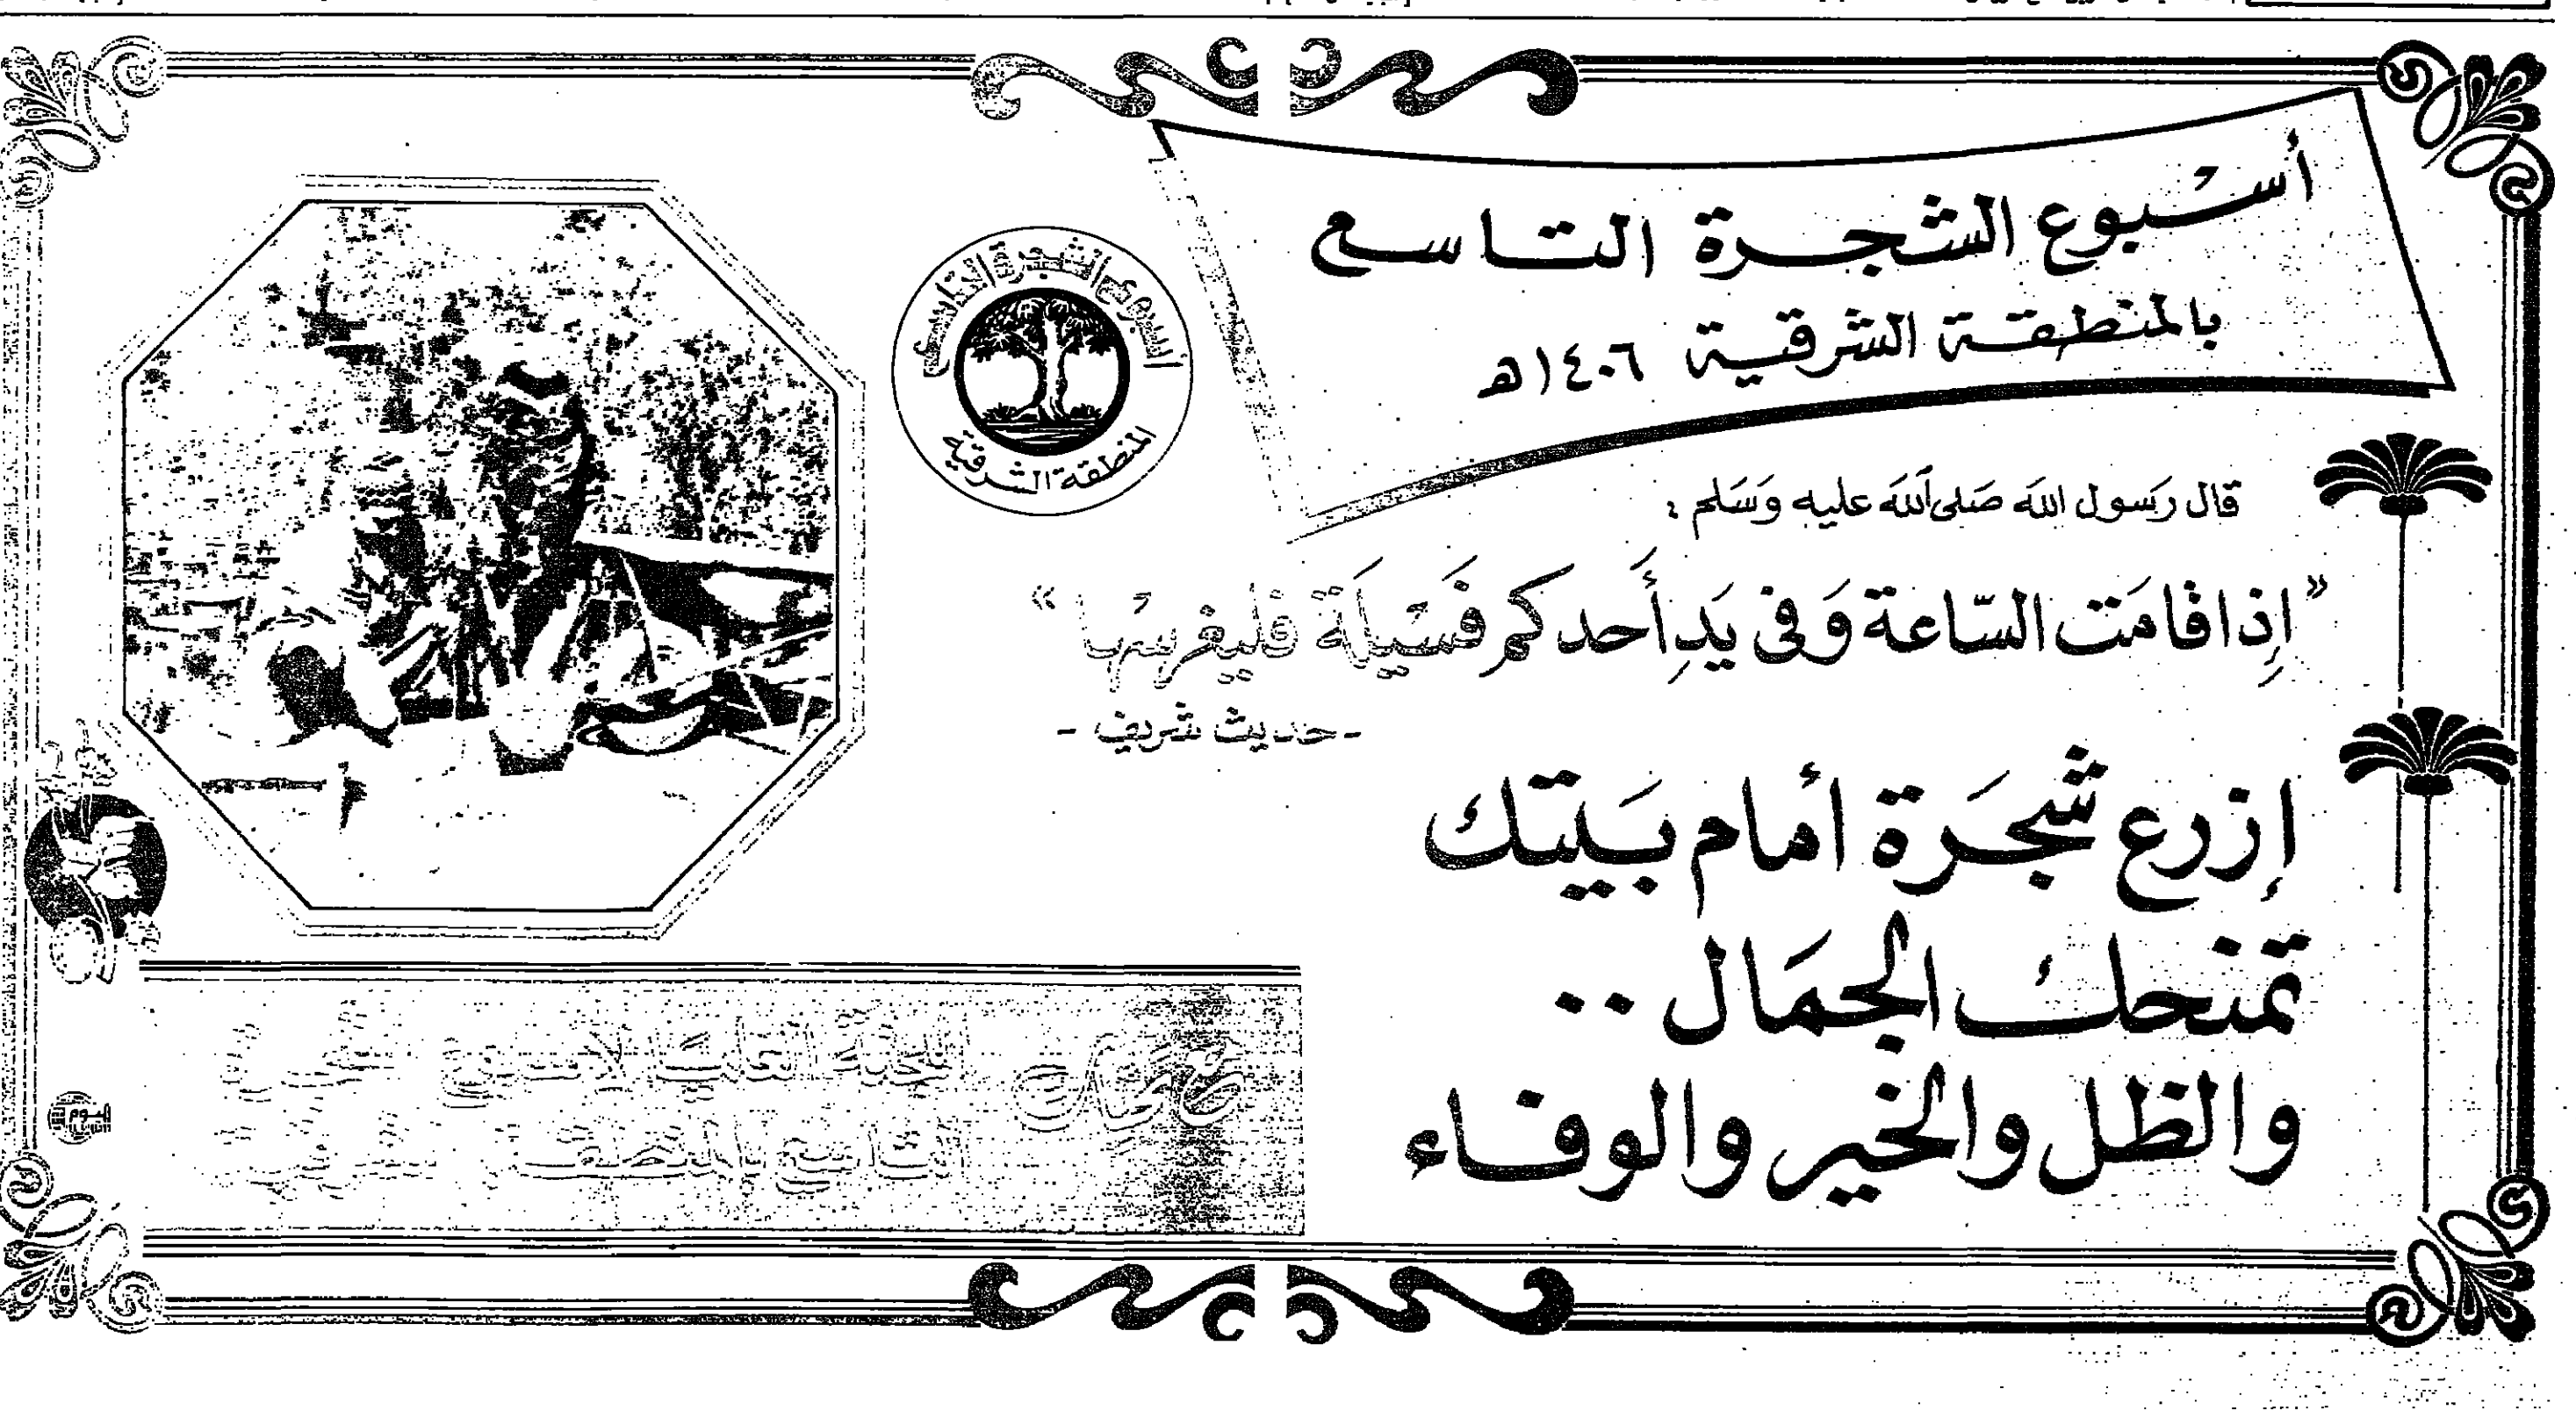 أسبوع الشجرة التاسع
بالمنطقة الشرقية ١٤٠٦هـ
أسبوع الشجرة التاسع
المنطقة الشرقية
قال رَسول الله صَلى الله عليه وَسَلم :
"إِذا قامَت السّاعة وَفى يَدِ أَحدكم فَسيلَة فليغرسها"
- حديث شريف -
إزرع شجَرة أمام بَيتك
تمنحك الجمَال ..
والظل والخير والوفاء
اللجنة العليا لأسبوع
التاسع بالمنطقة
اليوم